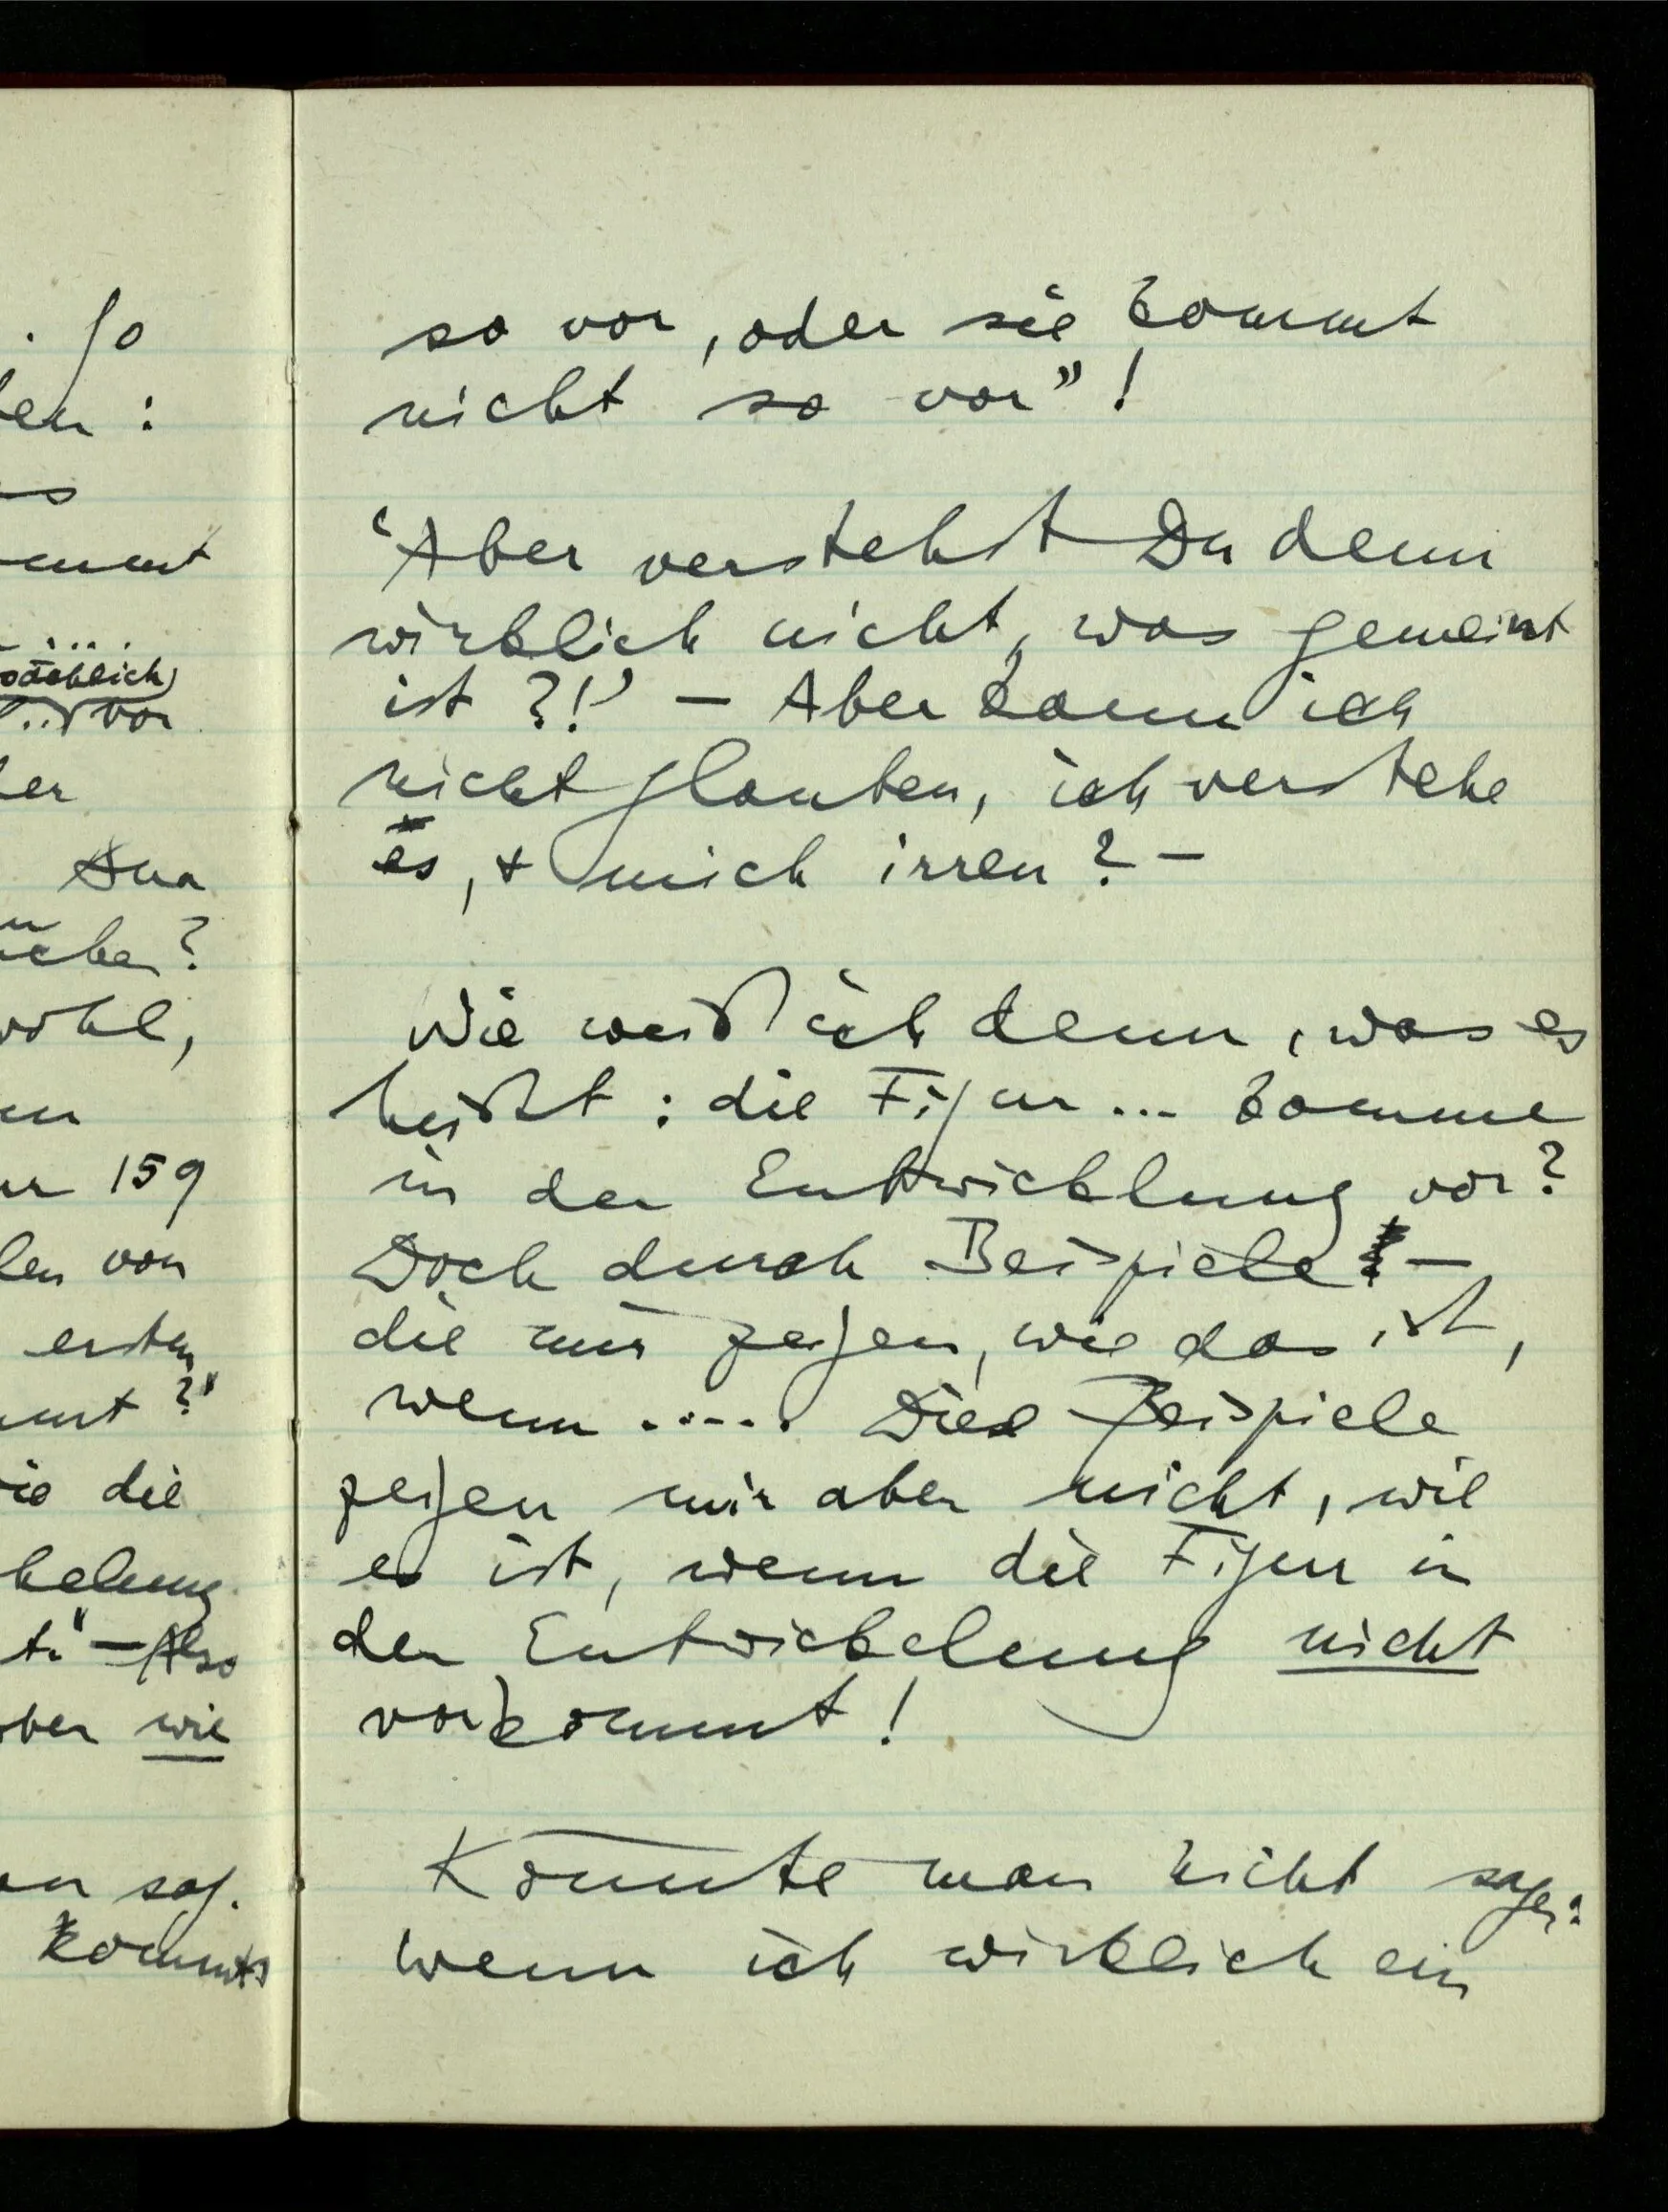 . So
ben:
es
kommt
.....
tatsächlich
... vor
der
Ana
wohl,
159
von
ersten
?"
wie die
kelung
" – Also
aber wie
sag.
kommt
so vor, oder sie kommt
nicht so vor"!
'Aber verstehst Du denn
wirklich nicht, was gemeint
ist?!' – Aber kann ich
nicht glauben, ich verstehe
es, + mich irren? –
Wie weiß ich denn, was es
heißt: die Figur... komme
in der Entwicklung vor?
Doch durch Beispiele –
die mir zeigen, wie das ist,
wenn ..... Diese Beispiele
zeigen mir aber nicht, wie
es ist, wenn die Figur in
der Entwickelung nicht
vorkommt!
Könnte man nicht sagen:
wenn ich wirklich ein